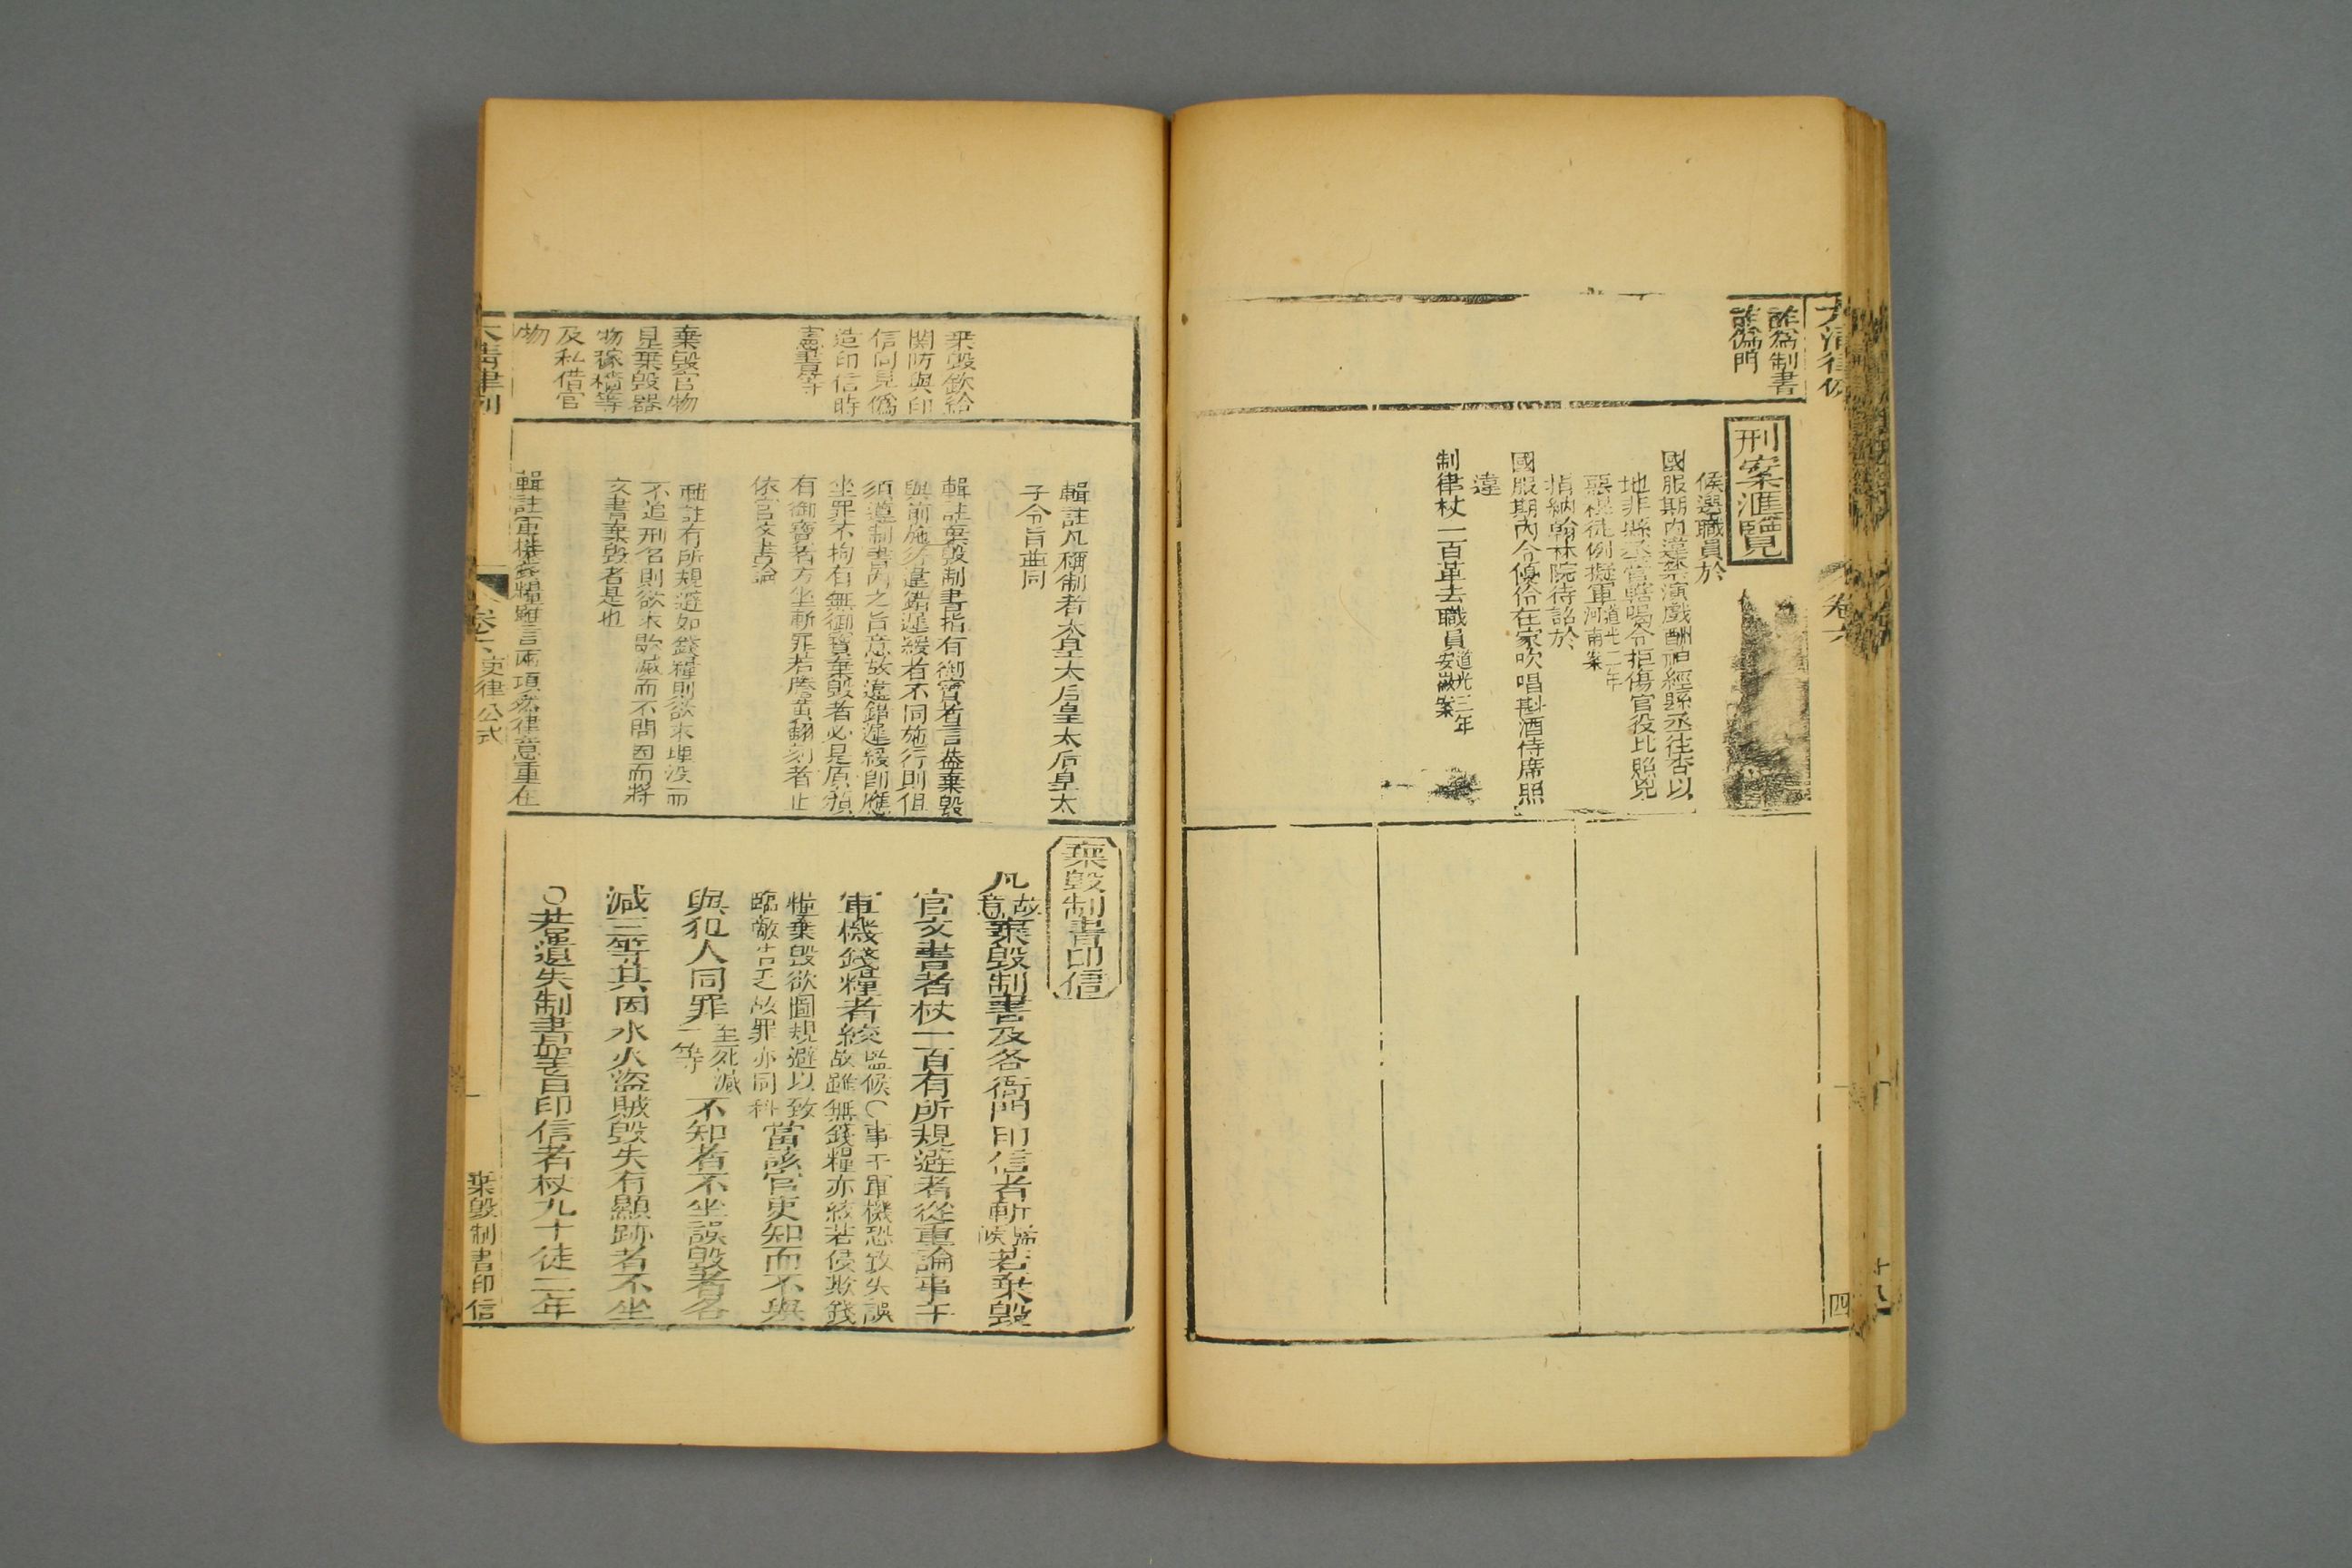 大清律例
卷六
四
詐爲制書
詐僞門
刑案滙覽
候選職員於
國服期內違禁演戲酬神經縣丞往查以
地非縣丞管轄喝令拒傷官役比照兇
惡棍徒例擬軍道光二年河南案
指納翰林院待詔於
國服期內令優伶在家吹唱斟酒侍席照
違
制律杖一百革去職員道光三年安徽案
棄毀欽給
關防與印
信同見僞
造印信時
憲書等
棄毀官物
見棄毀器
物稼穡等
及私借官
物
輯註凡稱制者太皇太后皇太后皇太
子令旨並同
輯註棄毀制書指有御寶者言蓋棄毀
與前施行違錯遲緩者不同施行則但
須遵制書內之旨意故違錯遲緩卽應
坐罪不拘有無御寶棄毀者必是原頒
有御寶者方坐斬罪若謄黃翻刻者止
依官文書論
輯註有所規避如錢糧則欲求埋沒而
不追刑名則欲求歇滅而不問因而將
文書棄毀者是也
輯註軍機錢糧雖言兩項然律意重在
棄毀制書印信
凡故意棄毀制書及各衙門印信者斬監候若棄毀
官文書者杖一百有所規避者從重論事干
軍機錢糧者絞監候〇事干軍機恐致失誤故雖無錢糧亦絞若侵欺錢
糧棄毀欲圖規避以致臨敵告乏故罪亦同科當該官吏知而不舉
與犯人同罪至死減一等不知者不坐誤毀者各
減三等其因水火盜賊毀失有顯跡者不坐
〇若遺失制書聖旨印信者杖九十徒二年
大清律例
卷六 吏律公式
棄毀制書印信